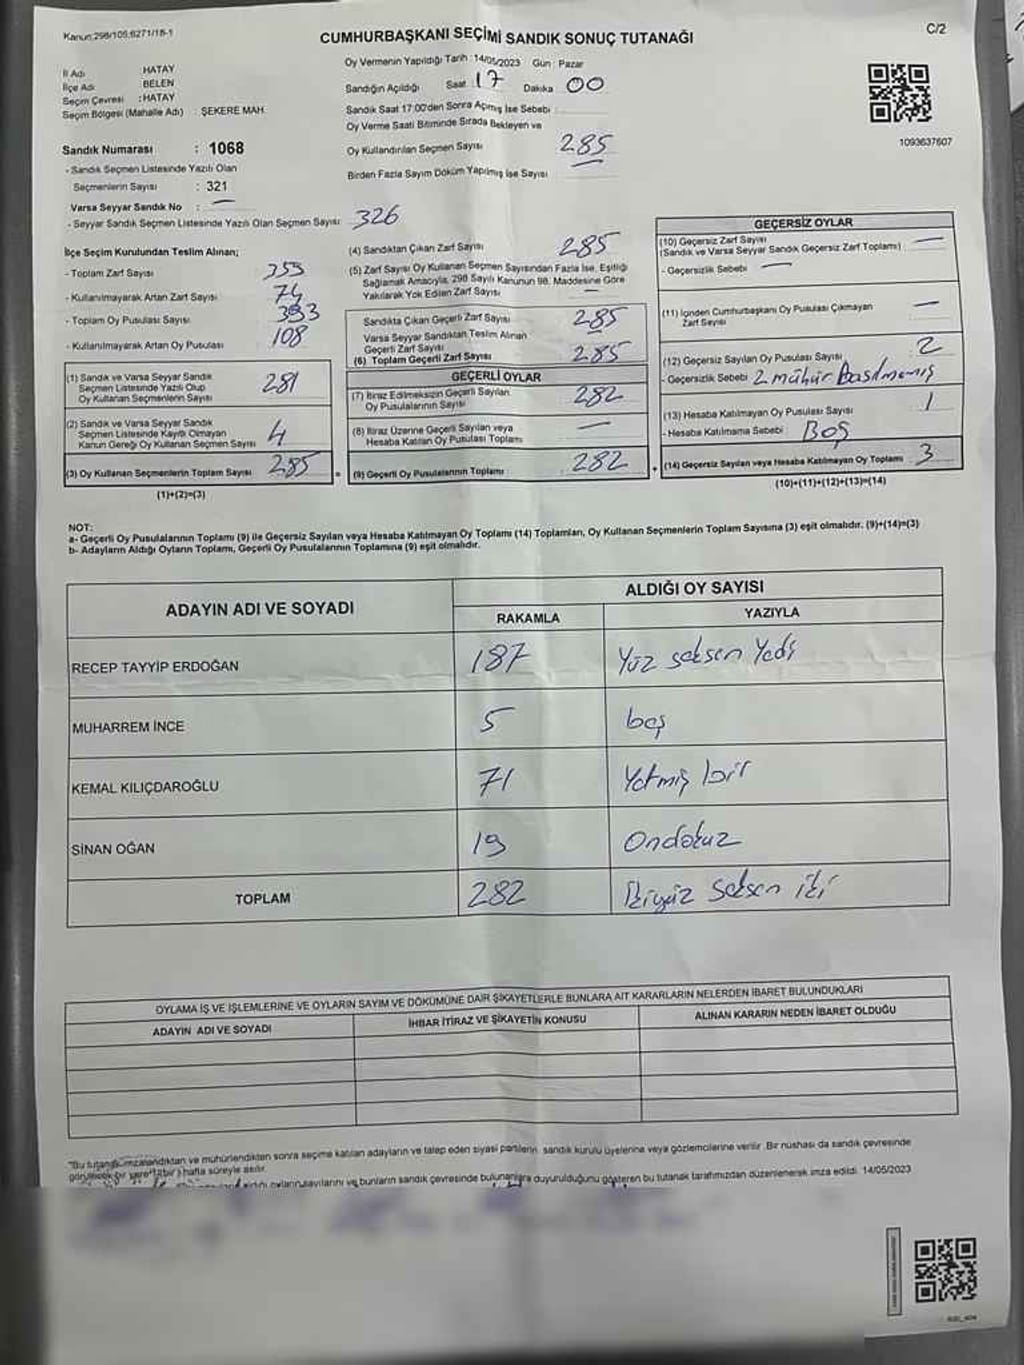 Kanun:298/105;6271/18-1
CUMHURBAŞKANI SEÇİMİ SANDIK SONUÇ TUTANAĞI
C/2
İl Adı HATAY
İlçe Adı BELEN
Seçim Çevresi : HATAY
Seçim Bölgesi (Mahalle Adı) : ŞEKERE MAH.
Sandık Numarası : 1068
- Sandık Seçmen Listesinde Yazılı Olan
Seçmenlerin Sayısı : 321
Varsa Seyyar Sandık No : —
- Seyyar Sandık Seçmen Listesinde Yazılı Olan Seçmen Sayısı: 326
Oy Vermenin Yapıldığı Tarih : 14/05/2023 Gün : Pazar
Sandığın Açıldığı Saat : 17 Dakika 00
Sandık Saat 17:00'den Sonra Açılmış İse Sebebi :
Oy Verme Saati Bitiminde Sırada Bekleyen ve
Oy Kullandırılan Seçmen Sayısı 285
Birden Fazla Sayım Döküm Yapılmış İse Sayısı
1093637607
İlçe Seçim Kurulundan Teslim Alınan;
- Toplam Zarf Sayısı 355
- Kullanılmayarak Artan Zarf Sayısı 74
- Toplam Oy Pusulası Sayısı 393
- Kullanılmayarak Artan Oy Pusulası 108
(1) Sandık ve Varsa Seyyar Sandık
Seçmen Listesinde Yazılı Olup
Oy Kullanan Seçmenlerin Sayısı 281
(2) Sandık ve Varsa Seyyar Sandık
Seçmen Listesinde Kayıtlı Olmayan
Kanun Gereği Oy Kullanan Seçmen Sayısı 4
(3) Oy Kullanan Seçmenlerin Toplam Sayısı 285
(1)+(2)=(3)
(4) Sandıktan Çıkan Zarf Sayısı 285
(5) Zarf Sayısı Oy Kullanan Seçmen Sayısından Fazla İse, Eşitliği
Sağlamak Amacıyla, 298 Sayılı Kanunun 98. Maddesine Göre
Yakılarak Yok Edilen Zarf Sayısı —
Sandıkta Çıkan Geçerli Zarf Sayısı 285
Varsa Seyyar Sandıktan Teslim Alınan
Geçerli Zarf Sayısı
(6) Toplam Geçerli Zarf Sayısı 285
GEÇERLİ OYLAR
(7) İtiraz Edilmeksizin Geçerli Sayılan
Oy Pusulalarının Sayısı 282
(8) İtiraz Üzerine Geçerli Sayılan veya
Hesaba Katılan Oy Pusulası Toplamı —
(9) Geçerli Oy Pusulalarının Toplamı 282
GEÇERSİZ OYLAR
(10) Geçersiz Zarf Sayısı —
(Sandık ve Varsa Seyyar Sandık Geçersiz Zarf Toplamı)
- Geçersizlik Sebebi —
(11) İçinden Cumhurbaşkanı Oy Pusulası Çıkmayan
Zarf Sayısı —
(12) Geçersiz Sayılan Oy Pusulası Sayısı 2
- Geçersizlik Sebebi 2 mühür Basılmamış
(13) Hesaba Katılmayan Oy Pusulası Sayısı 1
- Hesaba Katılmama Sebebi : BOŞ
(14) Geçersiz Sayılan veya Hesaba Katılmayan Oy Toplamı 3
(10)+(11)+(12)+(13)=(14)
NOT:
a- Geçerli Oy Pusulalarının Toplamı (9) ile Geçersiz Sayılan veya Hesaba Katılmayan Oy Toplamı (14) Toplamları, Oy Kullanan Seçmenlerin Toplam Sayısına (3) eşit olmalıdır. (9)+(14)=(3)
b- Adayların Aldığı Oyların Toplamı, Geçerli Oy Pusulalarının Toplamına (9) eşit olmalıdır.
ADAYIN ADI VE SOYADI
ALDIĞI OY SAYISI
RAKAMLA YAZIYLA
RECEP TAYYİP ERDOĞAN 187 Yüz seksen Yedi
MUHARREM İNCE 5 beş
KEMAL KILIÇDAROĞLU 71 Yetmiş bir
SİNAN OĞAN 19 Ondokuz
TOPLAM 282 İkiyüz Seksen iki
OYLAMA İŞ VE İŞLEMLERİNE VE OYLARIN SAYIM VE DÖKÜMÜNE DAİR ŞİKAYETLERLE BUNLARA AİT KARARLARIN NELERDEN İBARET BULUNDUKLARI
ADAYIN ADI VE SOYADI İHBAR İTİRAZ VE ŞİKAYETİN KONUSU ALINAN KARARIN NEDEN İBARET OLDUĞU
"Bu tutanak imzalandıktan ve mühürlendikten sonra seçime katılan adayların ve talep eden siyasi partilerin sandık kurulu üyelerine veya gözlemcilerine verilir. Bir nüshası da sandık çevresinde
görülecek bir yere (bir) hafta süreyle asılır.
oyların sayılarını ve bunların sandık çevresinde bulunanlara duyurulduğunu gösteren bu tutanak tarafımızdan düzenlenerek imza edildi. 14/05/2023